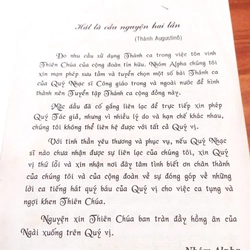 Hát là cầu nguyện hai lần
(Thánh Augustinô)
Do nhu cầu sử dụng Thánh ca trong việc tôn vinh
Thiên Chúa của cộng đoàn tín hữu, Nhóm Alpha chúng tôi
xin mạn phép sưu tầm và tuyển chọn một số bài Thánh ca
của Quý Nhạc sĩ Công giáo trong và ngoài nước để hình
thành nên Tuyển tập Thánh ca cộng đồng này.
Mặc dầu đã cố gắng liên lạc để trực tiếp xin phép
Quý Tác giả, nhưng vì nhiều lý do và hạn chế khác nhau,
chúng tôi không thể liên hệ được với tất cả Quý vị.
Với tinh thần yêu thương và phục vụ, nếu Quý Nhạc
sĩ nào chưa nhận được sự liên lạc của chúng tôi, chúng tôi
xin thứ lỗi và xin nhận nơi đây tâm tình biết ơn chân thành
của chúng tôi và của cộng đoàn về sự đóng góp về những
lời ca tiếng hát quý báu của Quý vị cho việc ca tụng và
ngợi khen Thiên Chúa.
Nguyện xin Thiên Chúa ban tràn đầy hồng ân của
Ngài xuống trên Quý vị.
Nhóm Alpha